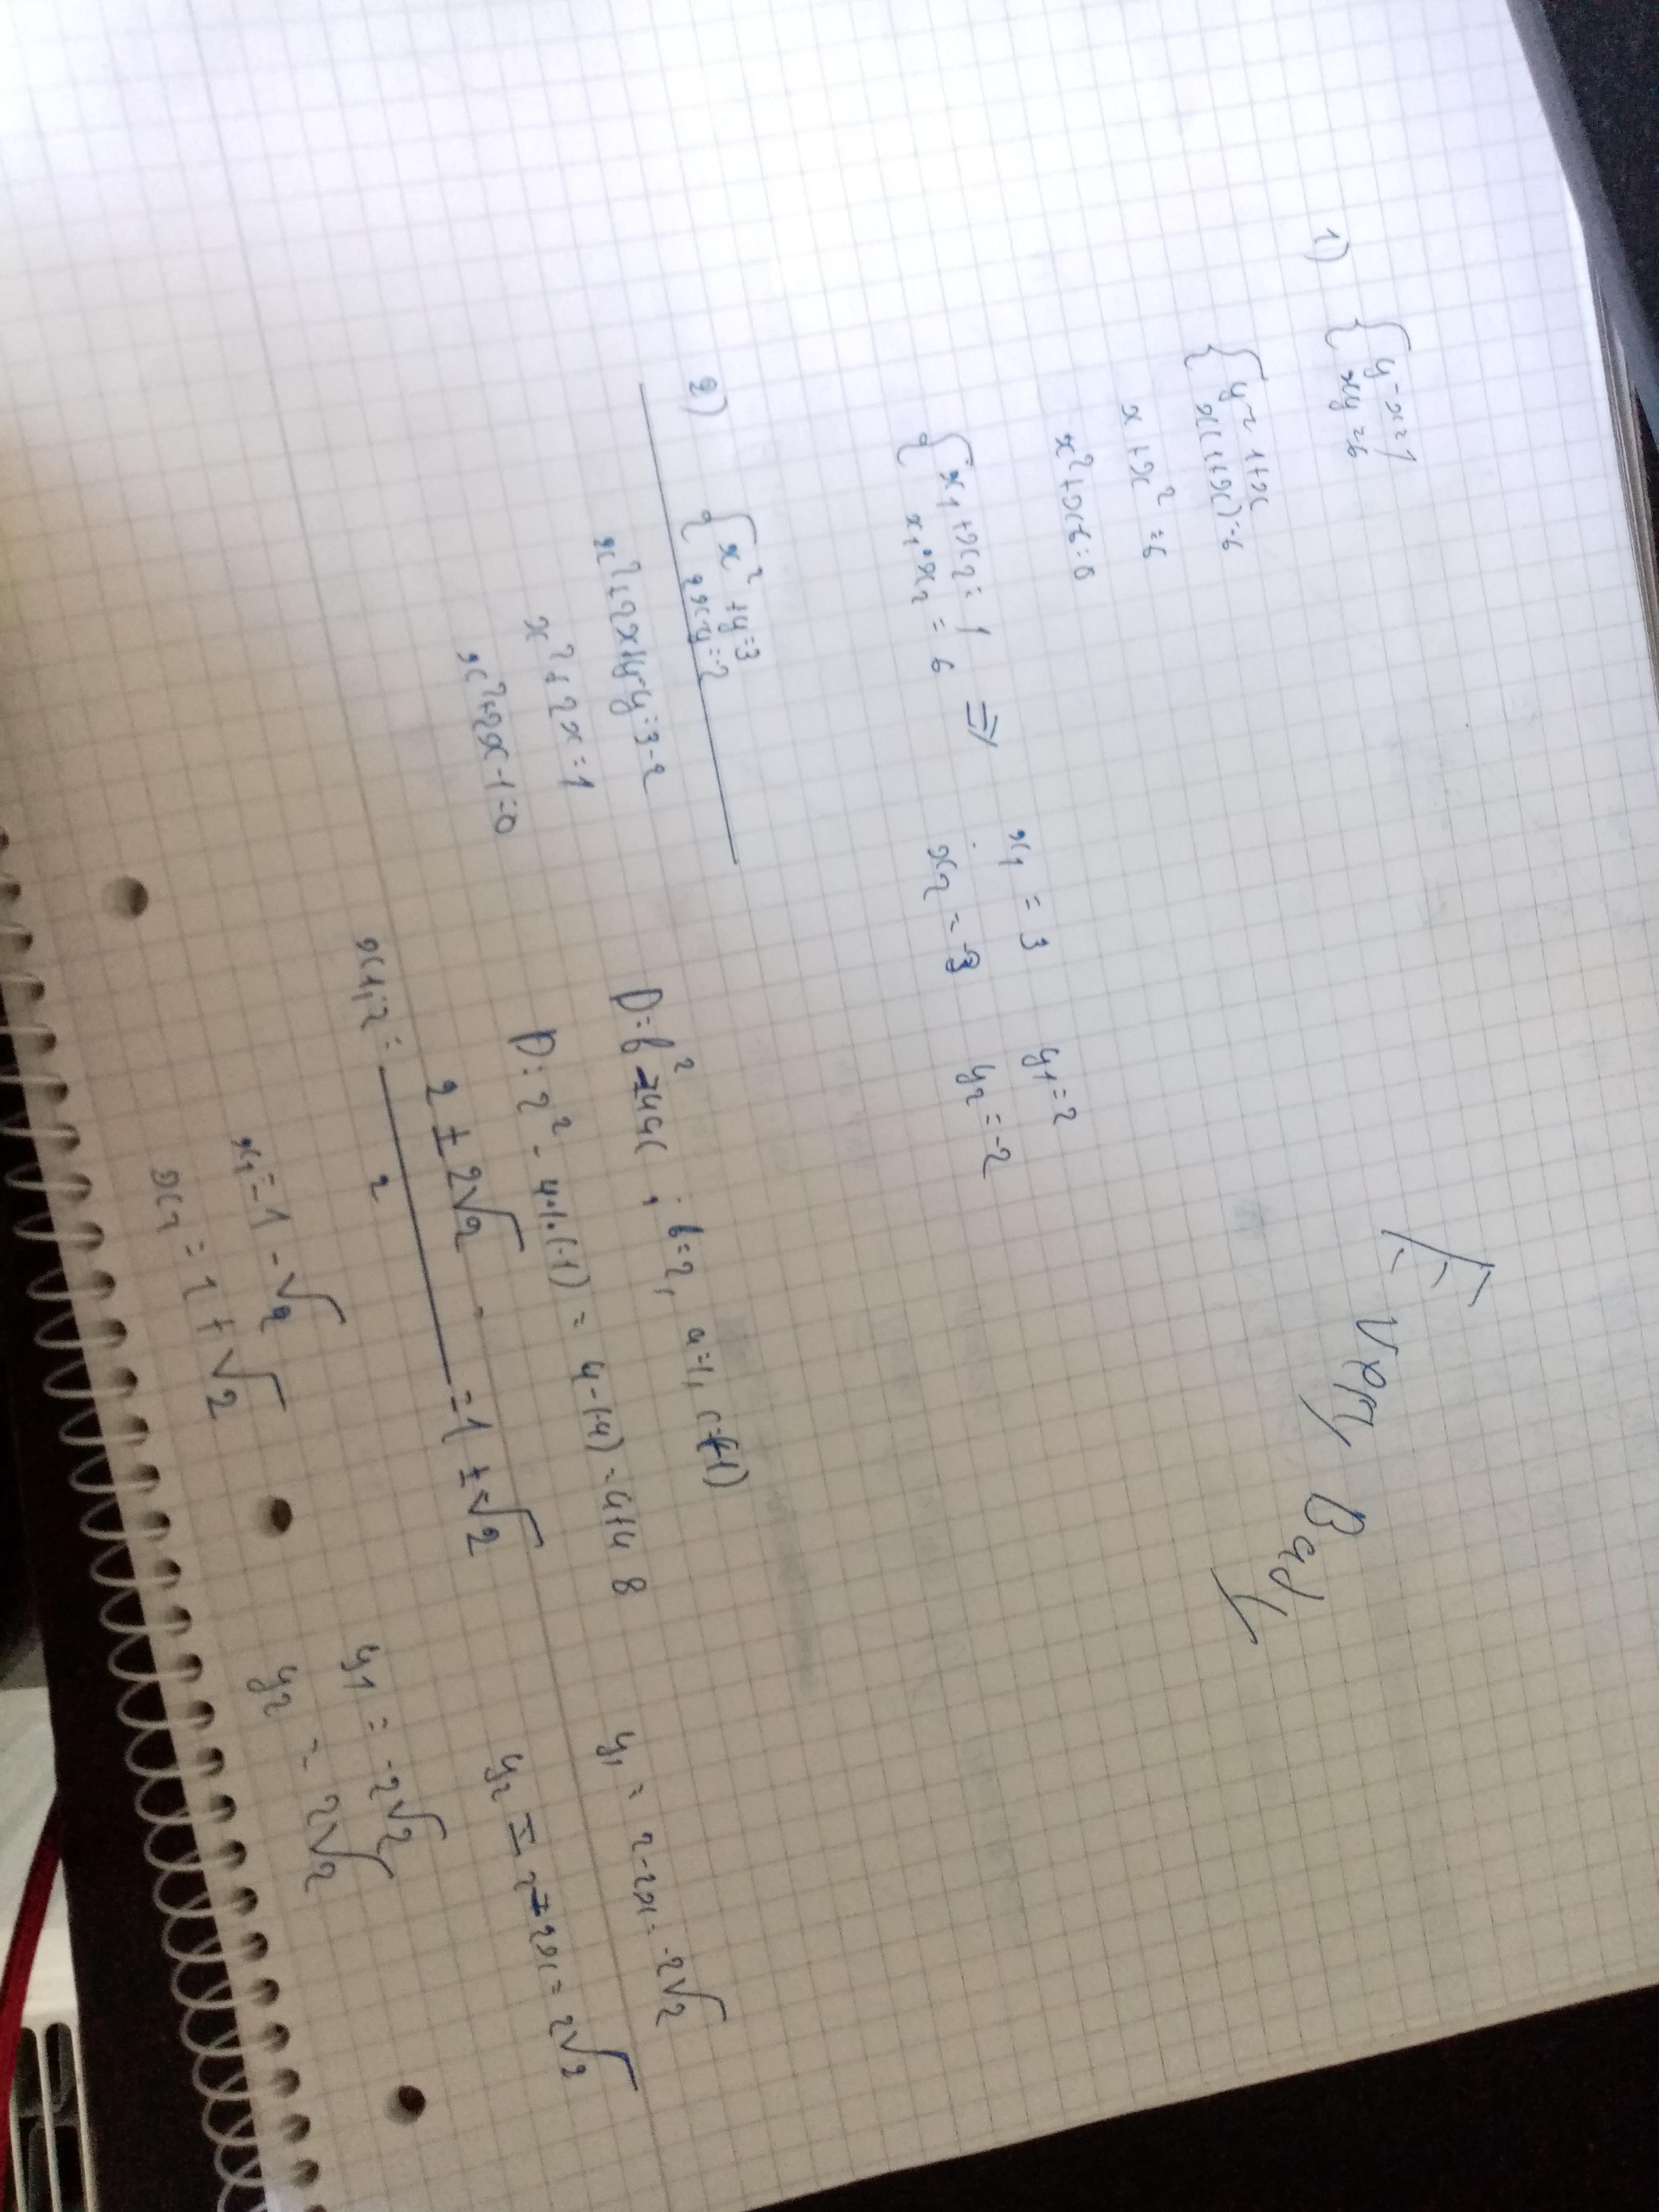 F- Very Bad
1) { y-x=1
xy=6
{ y=1+x
x(1+x)=6
x+x²=6
x²+x+6=0
{ x1+x2=1
x1·x2=6 =>
x1=3 y1=2
x2=-3 y2=-2
2) { x²+y=3
2x-y=-2
x²+2x+y-y=3-2
x²+2x=1
x²+2x-1=0
D=b²-4ac; b=2, a=1, c=(-1)
D=2²-4·1·(-1)=4-(-4)=4+4 8
x1,2=(2±2√2)/2=1±√2
x1=1-√2
x2=1+√2
y1=2-2x=-2√2
y2=2+2x=2√2
y1=-2√2
y2=2√2